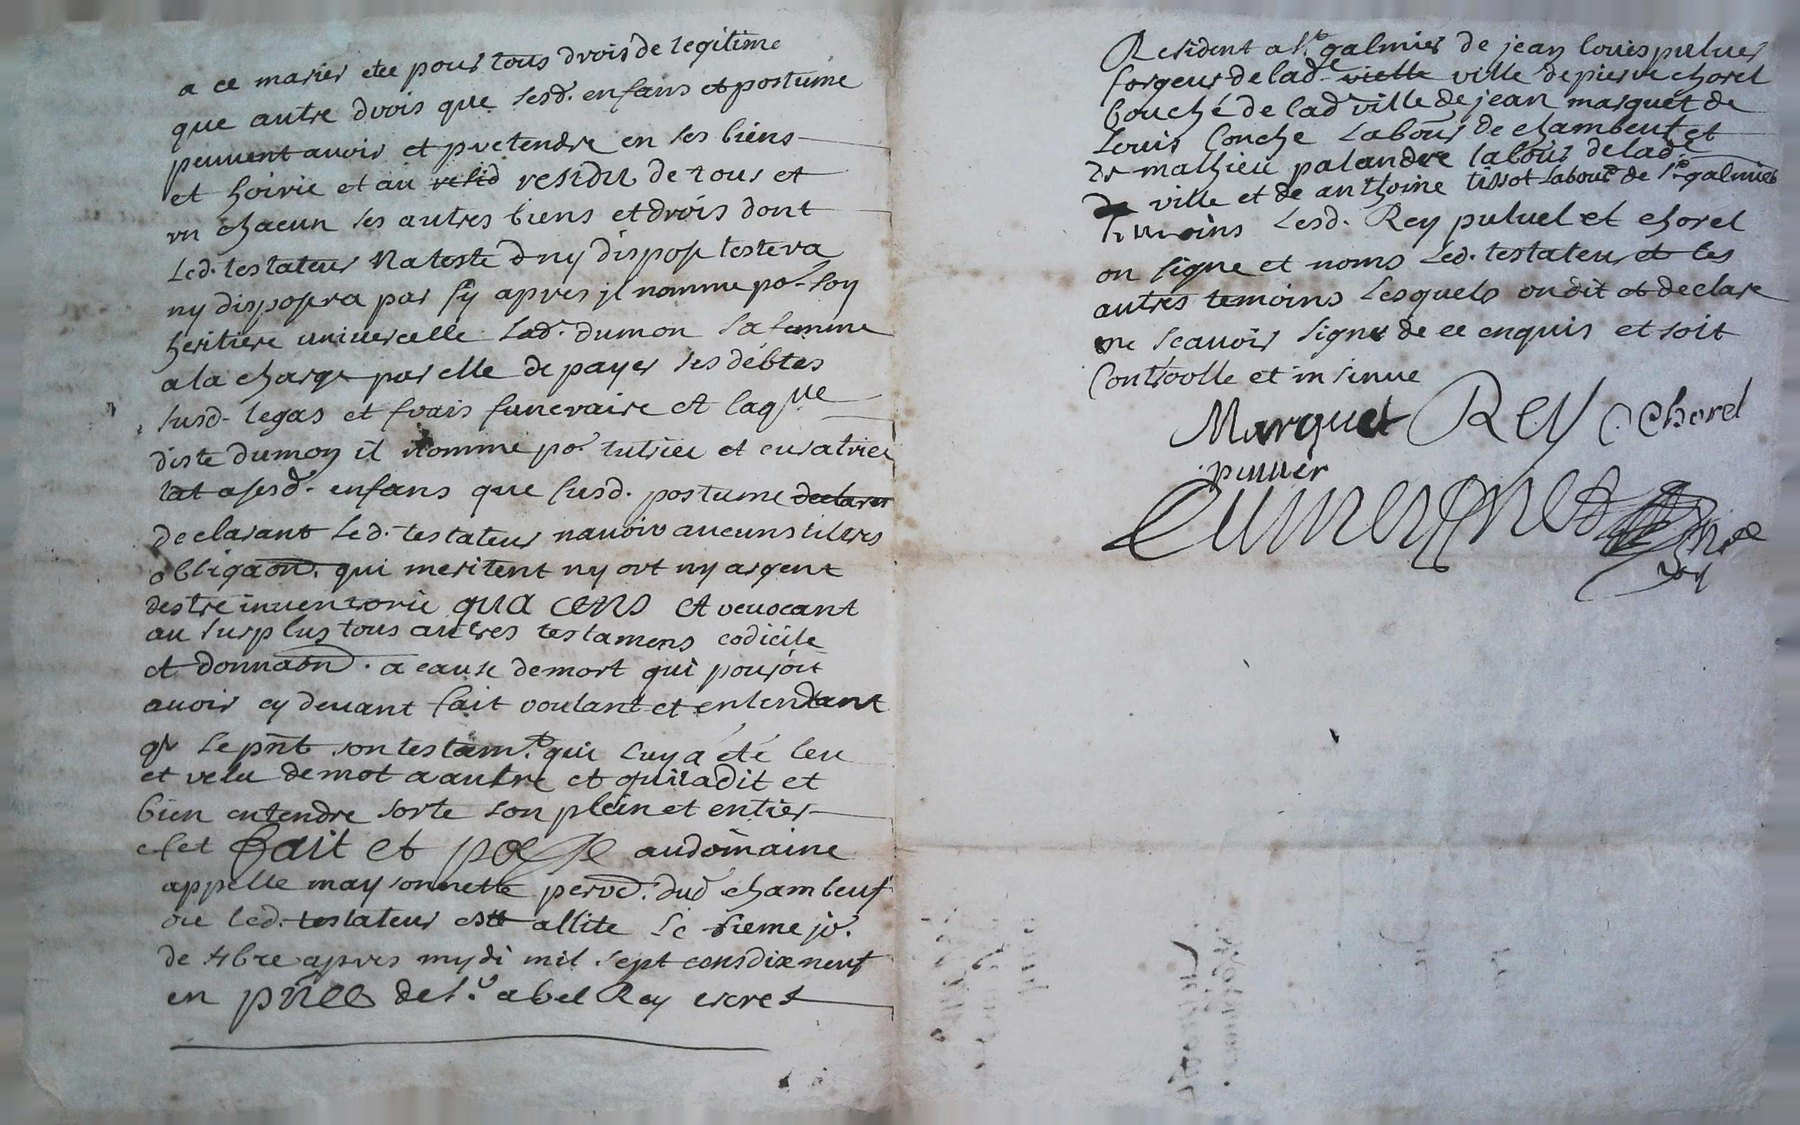 a ce marier et ce pour tous drois de legitime
que autre drois que sesd. enfans et postume
peuvent avoir et pretendre en ses biens
et hoirie et au residu de tous et
un chacun ses autres biens et drois dont
Led. testateur Na testé d ny disposé testera
ny disposera par sy apres jl nomme po.r son
heritiere universelle Lad. dumon sa femme
a la charge par elle de payer ses debtes
susd. legas et frais funeraire et laq.lle
diste dumon il nomme po.r tutrice et curatrice
tat a sesd. enfans que susd. postume declarer
declarant Led. testateur navoir aucuns titres
obligaon. qui meritent ny ort ny argent
destre inventorié qua cens et revocant
au surplus tous autres testamens codicile
et donnaon. a cause de mort qui pouroit
avoir cy devant fait voulant et entendant
q. Le pnt son testam.t qui Luy a été leu
et relu de mot a autre et quil a dit et
bien entendre sorte son plein et entier
efet fait et passe au domaine
appelle maysonnette paroe. dud chambeuf
ou Led. testateur est allite Le jo.r
de 4bre apres mydi mil sept cens dix neuf
en pnce de s.r abel Rey
Resident a St. galmier de jean louis puluer
forgeur de lad. vielle ville de pierre chorel
bouché de lad ville de jean marquet de
Louis Couche Labour de chambeuf et
de mathieu palandre labour de lad.e
ville et de anthoine tissot Labour de St. galmier
temoins Lesd. Rey puluel et chorel
on signe et noms Led. testateur et les
autres temoins Lesquels on dit et declare
ne scavoir signe de ce enquis et soit
Controolle et insinue
Marquet Rey Chorel
puluer